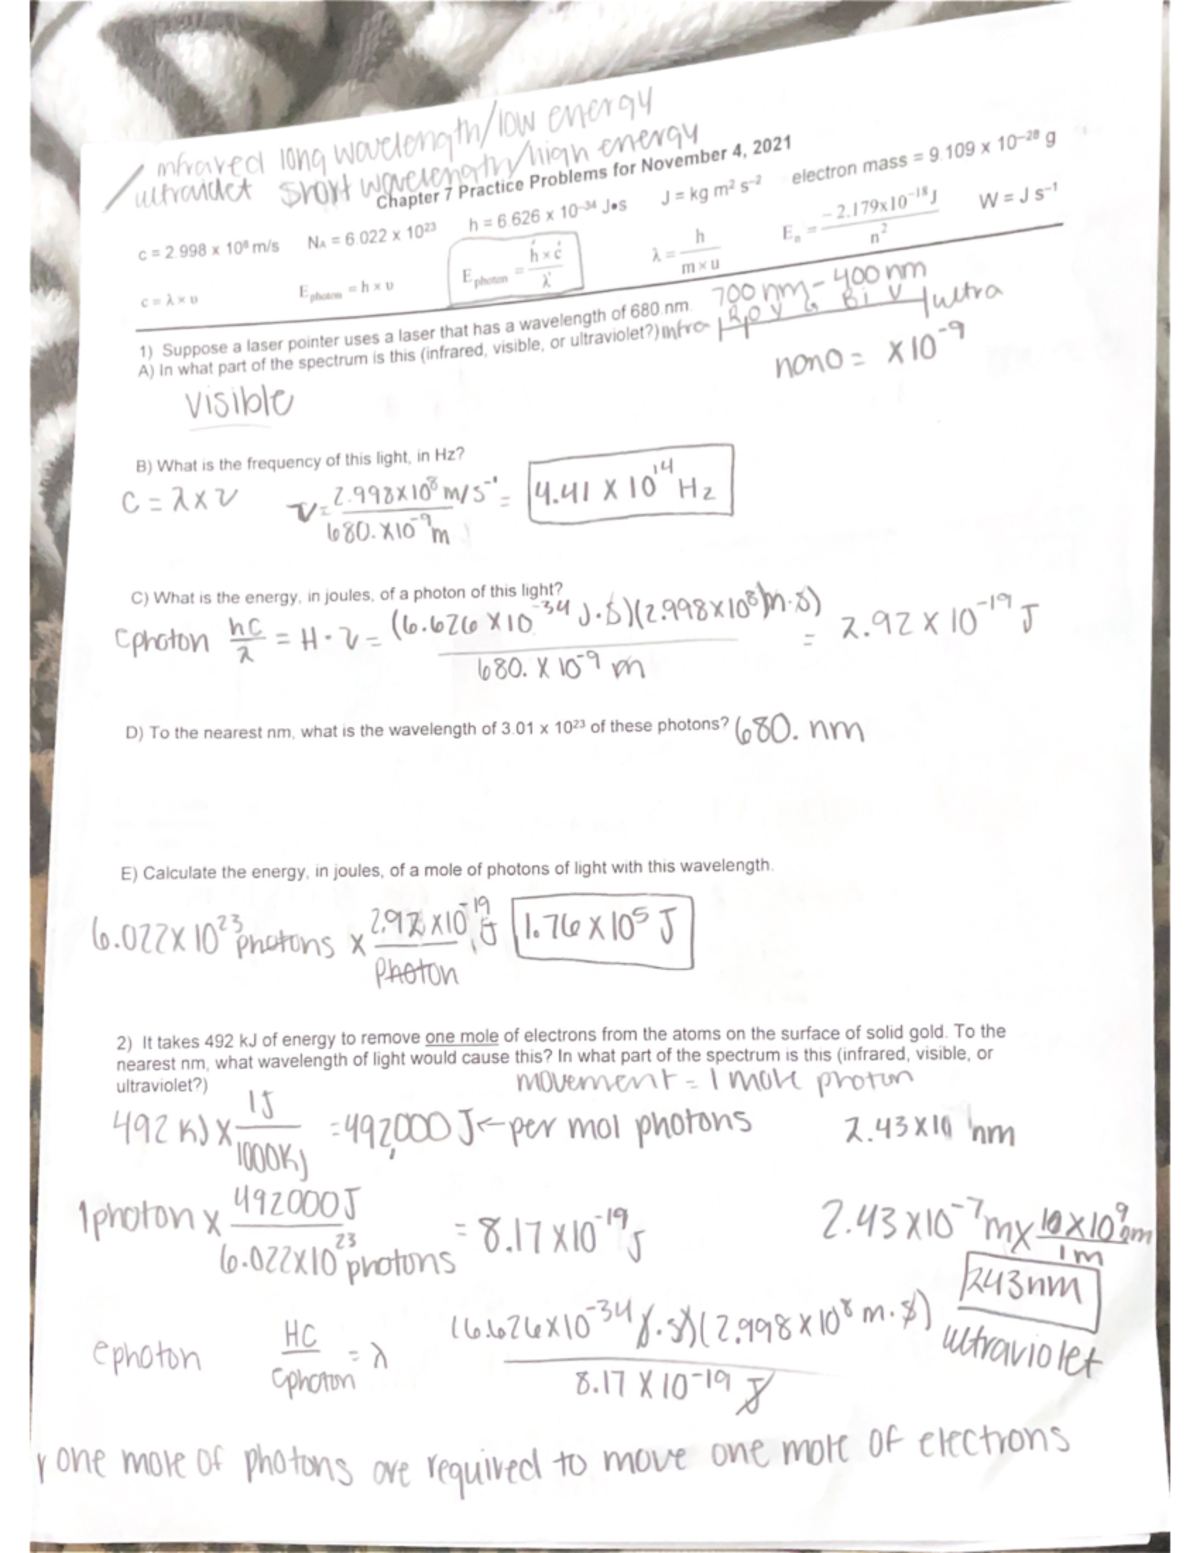 infrared long wavelength/low energy
ultraviolet short wavelength/high energy
Chapter 7 Practice Problems for November 4, 2021
c = 2.998 x 10⁸ m/s    Nᴀ = 6.022 x 10²³    h = 6.626 x 10⁻³⁴ J•s    J = kg m² s⁻²    electron mass = 9.109 x 10⁻²⁸ g
c = λ × υ    E photon = h × υ    E photon = h × c / λ    λ = h / m × u    Eₙ = −2.179x10⁻¹⁸ J / n²    W = J s⁻¹
1) Suppose a laser pointer uses a laser that has a wavelength of 680 nm.    700 nm - 400 nm
A) In what part of the spectrum is this (infrared, visible, or ultraviolet?) infra R O Y G B i V ultra
visible    nano = x10⁻⁹
B) What is the frequency of this light, in Hz?
C = λ x υ    υ = 2.998x10⁸ m/s⁻¹ / 680. x10⁻⁹ m = 4.41 x 10¹⁴ Hz
C) What is the energy, in joules, of a photon of this light?
Ephoton hc / λ = H · υ = (6.626 x10⁻³⁴ J·s)(2.998x10⁸ m·s) / 680. x 10⁻⁹ m = 2.92 x 10⁻¹⁹ J
D) To the nearest nm, what is the wavelength of 3.01 x 10²³ of these photons? 680. nm
E) Calculate the energy, in joules, of a mole of photons of light with this wavelength.
6.022x 10²³ photons x 2.92 x10⁻¹⁹ J / Photon    1.76 x 10⁵ J
2) It takes 492 kJ of energy to remove one mole of electrons from the atoms on the surface of solid gold. To the
nearest nm, what wavelength of light would cause this? In what part of the spectrum is this (infrared, visible, or
ultraviolet?)    movement = 1 mole photon
492 KJ x 1J / 1000KJ = 492,000 J ← per mol photons    2.43 x10 nm
1 photon x 492000J / 6.022x10²³ photons = 8.17 x10⁻¹⁹ J    2.43 x10⁻⁷ m x 10 x10⁹ nm / 1m
243nm
ephoton    HC / Ephoton = λ    (6.626x10⁻³⁴ J·s)(2.998 x 10⁸ m·s) / 8.17 x 10⁻¹⁹ J    ultraviolet
one mole of photons are required to move one mole of electrons